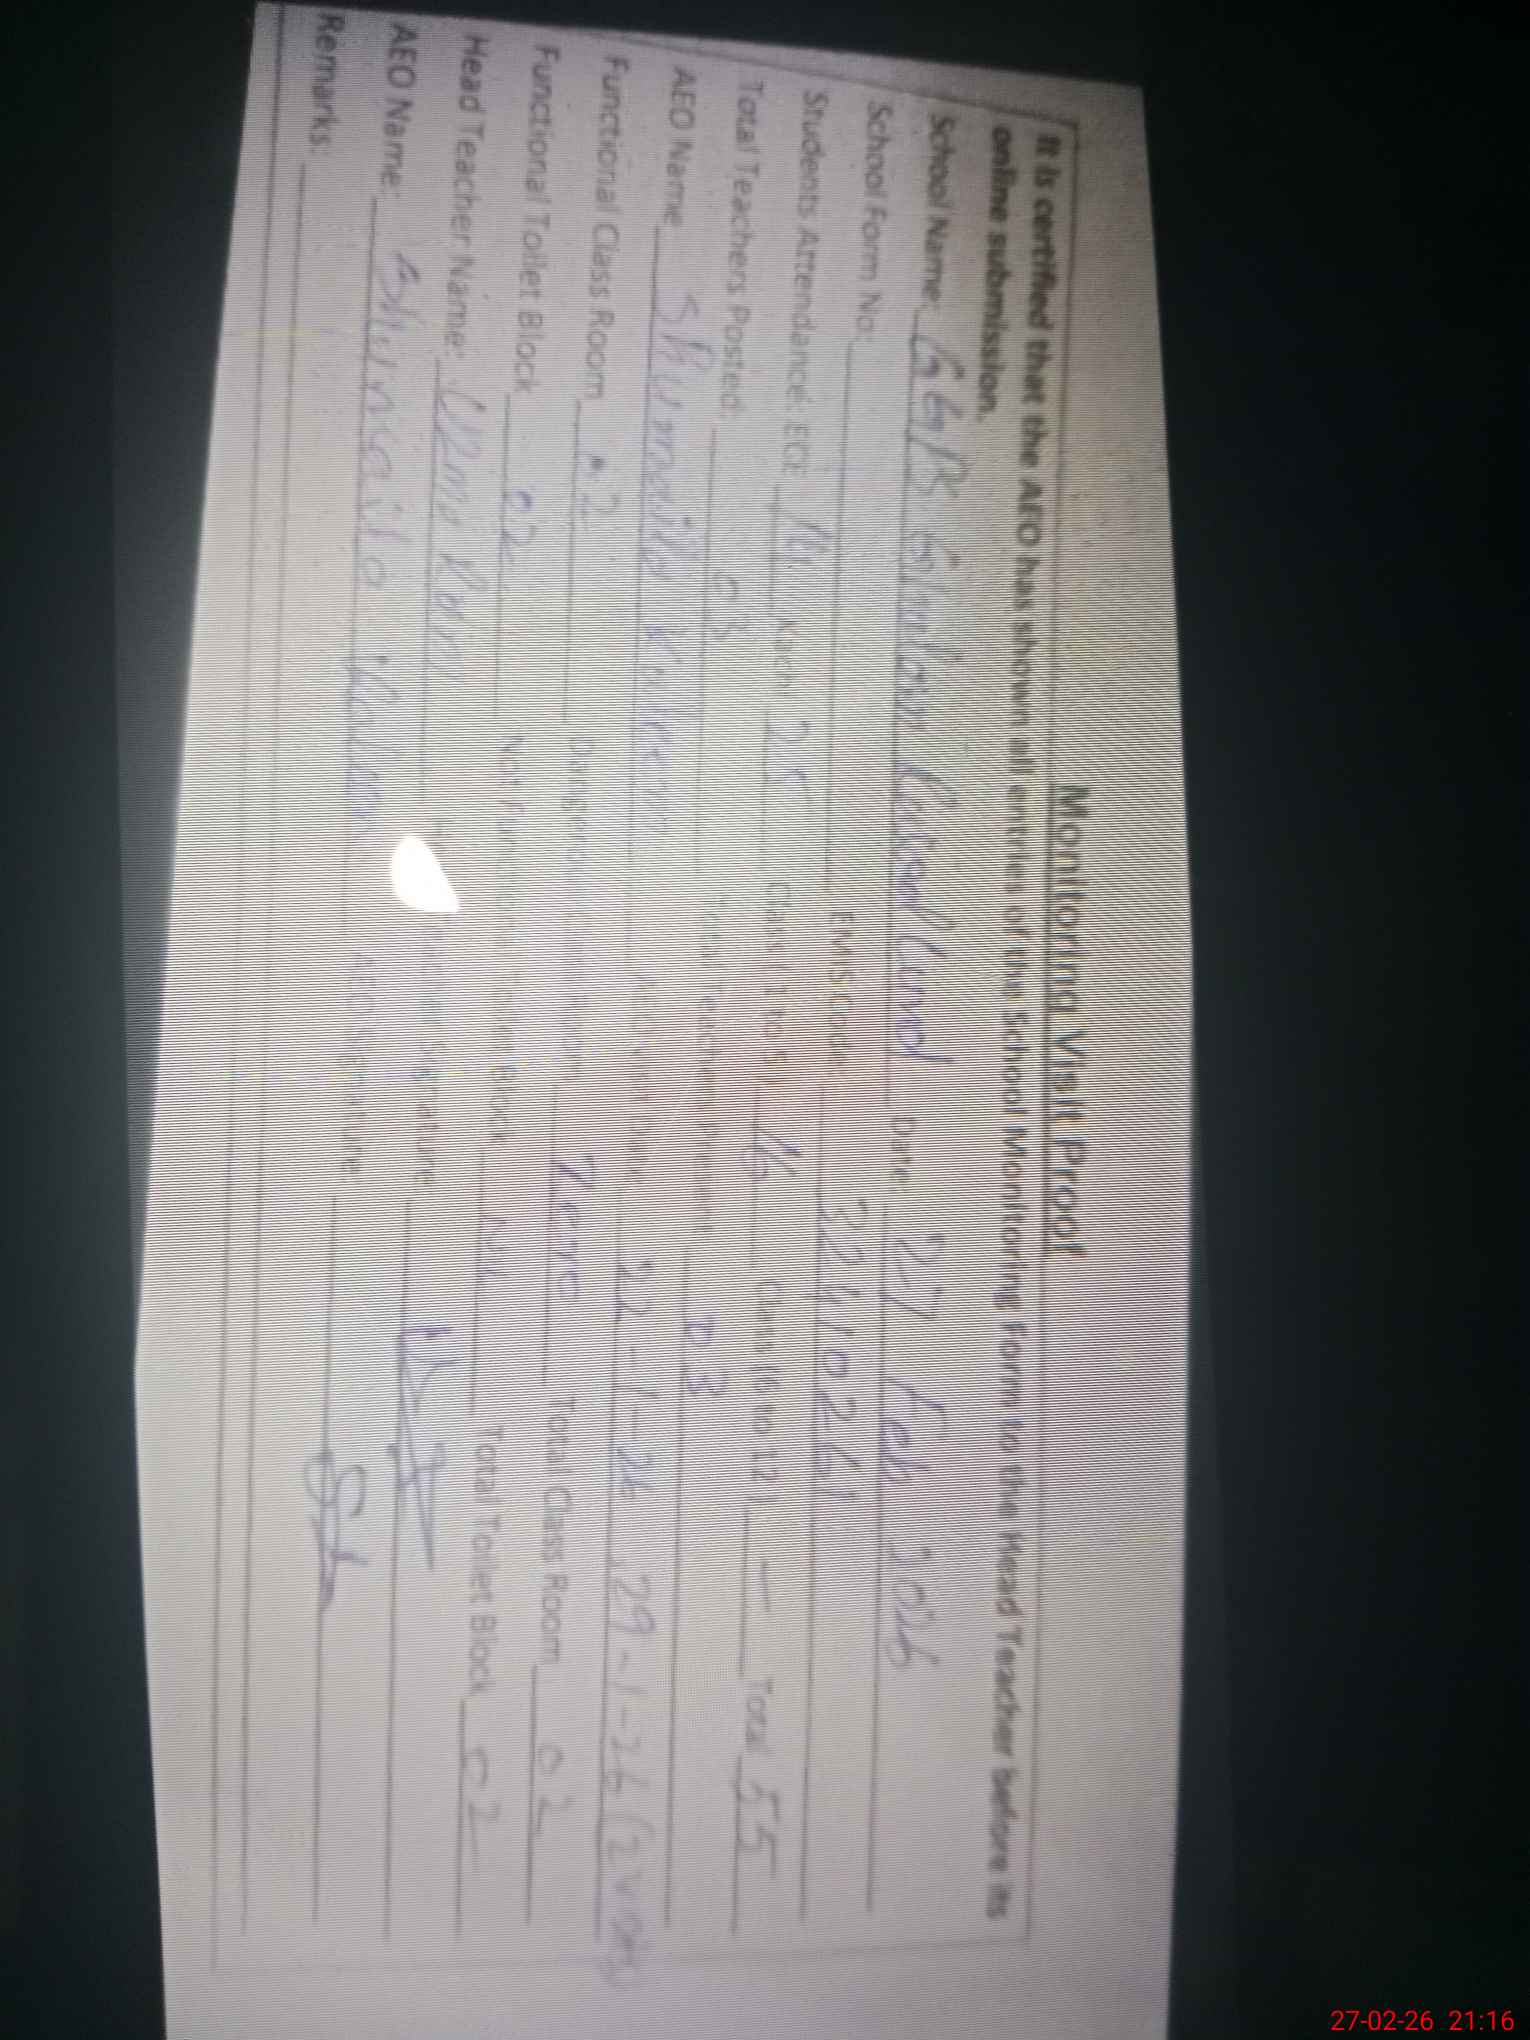 Monitoring Visit Proof
It is certified that the AEO has shown all entries of the School Monitoring Form to the Head Teacher before its
online submission.
School Name: GGPS Date: 27 Feb 2026
School Form No: EMIS Code: 32410261
Students Attendance: ECE 14 Kachi 25 Class (1 to 5) 16 Class (6 to 12) — Total 55
Total Teachers Posted: 03 Total Teachers Present 03
AEO Name Shumaila AEO Visit Date 22-1-26, 29-1-26 (2
Functional Class Room 02 Dangerous Class Room Zero Total Class Room 02
Functional Toilet Block 02 Not Functional Toilet Block Nil Total Toilet Block 02
Head Teacher Name: Uzma Rani Head Teacher Signature:
AEO Name: Shumaila AEO Signature:
Remarks:
27-02-26 21:16